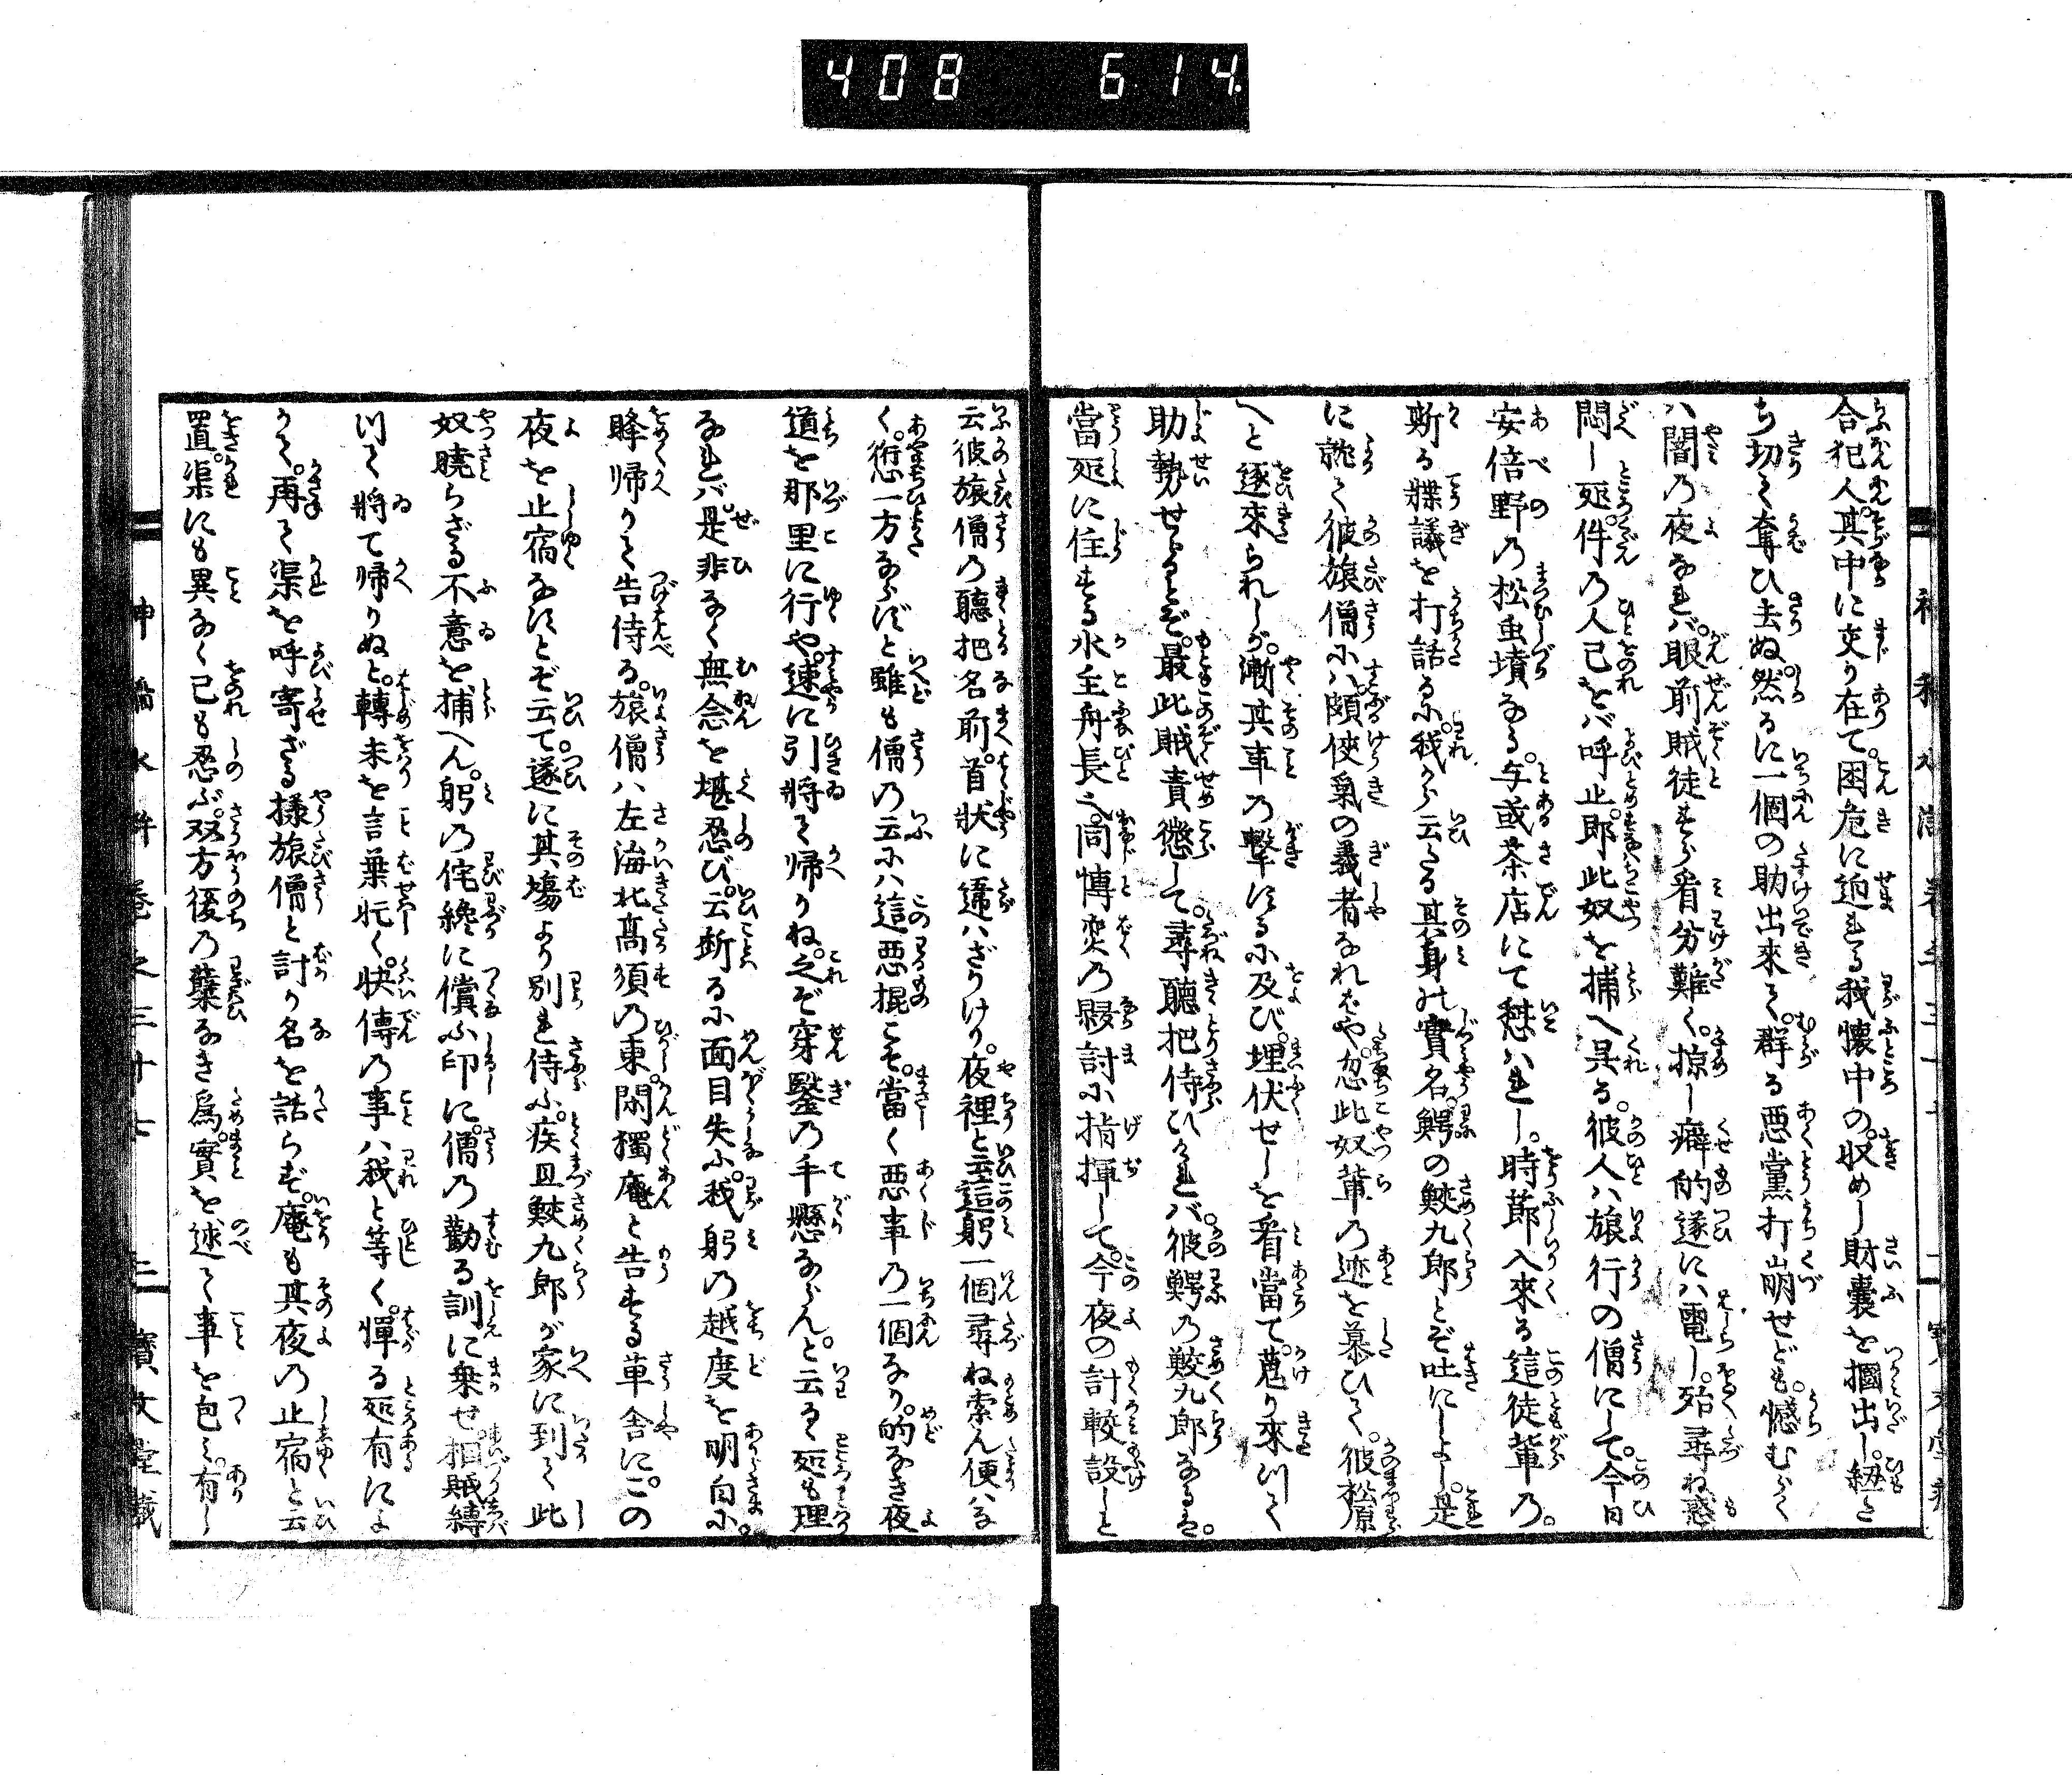 408 614
合犯人其中に交り在て。困危に迫れる我懐中の。収めし財嚢を摑出し。紐さ
ち切て奪ひ去ぬ。然るに一個の助出來て。群る悪黨打崩せども。憾むらく
ハ闇乃夜なれバ。眼前賊徒すら看分難く。掠し癖的遂にハ電し。殆尋ね惑
悶し処。件乃人己をバ呼止。郎此奴を捕へ呉る。彼人ハ旅行の僧にして。今日
安倍野乃松虫墳なる。与或茶店にて憇ハれし。時節入來る這徒輩乃。
斯る牒議を打話るに。我から云たる其身の實名。鰐の鮫九郎とぞ吐にしよし。是
に誂て彼旅僧にハ。頗侠氣の義者なればや。忽此奴輩の迹を慕ひて。彼松原
へと逐來られしが。漸其事乃撃するに及び。埋伏せしを看當て。蒐り來りて
助勢せしとぞ。最此賊責懲して。尋聽把侍ひけれバ。彼鰐乃鮫九郎なるは。
當処に住する水主舟長之。同博奕乃夥計に指揮して。今夜の計較設しと
云彼旅僧乃聽把名前。首状に違ハざりけり。夜裡と云這躬一個尋ね索ん便ハな
く。愆一方ならずと雖も僧乃云にハ這悪掍こそ。當く悪事乃一個なり。的なき夜
道を那里に行や。速に引將て帰りね。之ぞ穿鑿乃手懸ならん。と云るゝ処も理
なれバ。是非なく無念を堪忍び。云断るに面目失ふ。我躬乃越度を明白に。
降帰りて告侍る。旅僧ハ左海北髙須乃東。閑獨庵と告する草舎に。この
夜を止宿なすとぞ云て。遂に其場より別れ侍ふ。疾且鮫九郎が家に到て此
奴曉らざる不意を捕へん。躬乃侘纔に償ふ印に。僧乃勸る訓に乗せ。
りて將て帰りぬと。轉末を言葉忙く。快傳乃事ハ我と等く。憚る処有によ
りて。再て渠を呼寄ざる様旅僧と計り名を話らず。庵も其夜乃止宿と云
置。渠にも異なく己も忍ぶ。双方後乃孽なき為。實を述て事を包ミ。有し
寶文堂藏